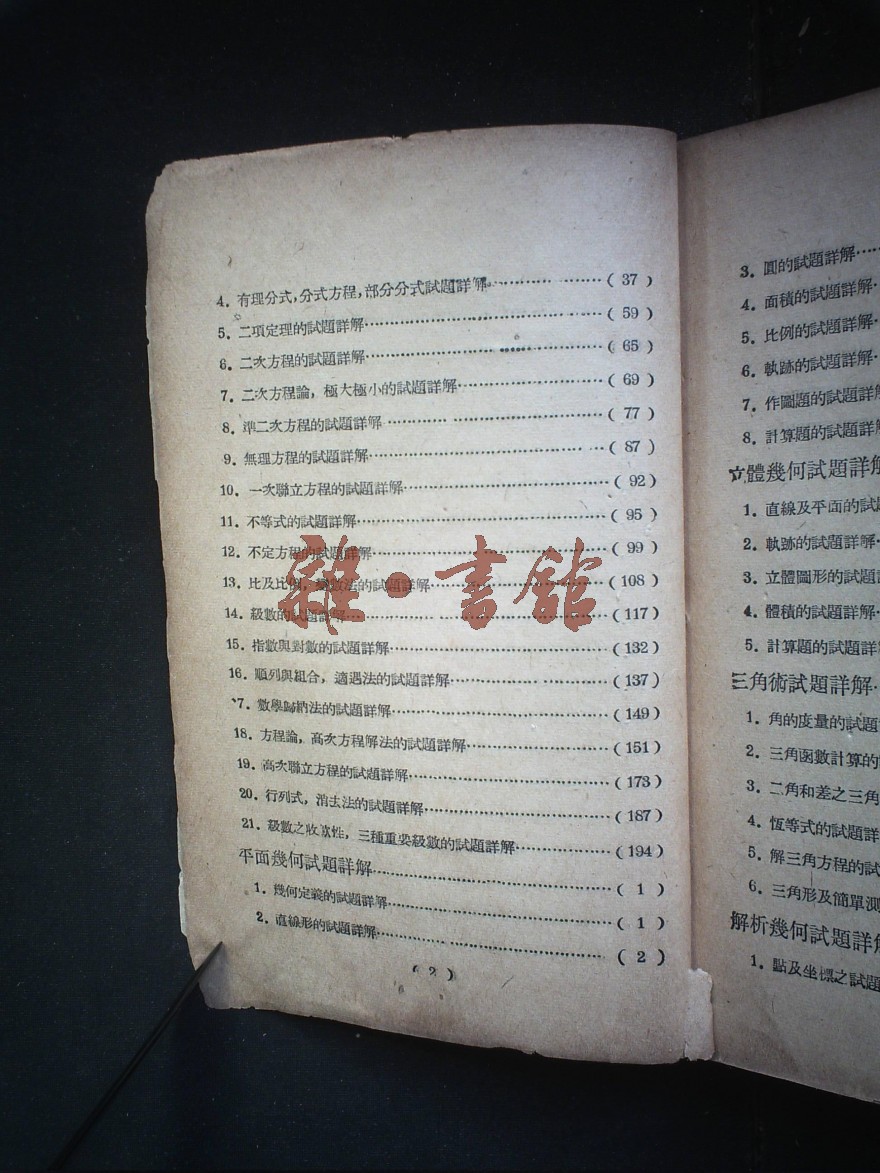 4. 有理分式,分式方程,部分分式試題詳解……………( 37 )
5. 二項定理的試題詳解……………( 59 )
6. 二次方程的試題詳解……………( 65 )
7. 二次方程論,極大極小的試題詳解……………( 69 )
8. 準二次方程的試題詳解……………( 77 )
9. 無理方程的試題詳解……………( 87 )
10. 一次聯立方程的試題詳解……………( 92 )
11. 不等式的試題詳解……………( 95 )
12. 不定方程的試題詳解……………( 99 )
13. 比及比例,變數法的試題詳解……………( 108 )
14. 級數的試題詳解……………( 117 )
15. 指數與對數的試題詳解……………( 132 )
16. 順列與組合,適遇法的試題詳解……………( 137 )
17. 數學歸納法的試題詳解……………( 149 )
18. 方程論,高次方程解法的試題詳解……………( 151 )
19. 高次聯立方程的試題詳解……………( 173 )
20. 行列式,消去法的試題詳解……………( 187 )
21. 級數之收斂性,三種重要級數的試題詳解……………( 194 )
平面幾何試題詳解……………( 1 )
1. 幾何定義的試題詳解……………( 1 )
2. 直線形的試題詳解……………( 2 )
( 2 )
雜·書館
3. 圓的試題詳解……
4. 面積的試題詳解
5. 比例的試題詳解
6. 軌跡的試題詳解
7. 作圖題的試題詳解
8. 計算題的試題詳解
立體幾何試題詳解
1. 直線及平面的試題
2. 軌跡的試題詳解
3. 立體圖形的試題詳
4. 體積的試題詳解
5. 計算題的試題詳解
三角術試題詳解
1. 角的度量的試題
2. 三角函數計算的
3. 二角和差之三角
4. 恆等式的試題詳
5. 解三角方程的試
6. 三角形及簡單測
解析幾何試題詳解
1. 點及坐標之試題